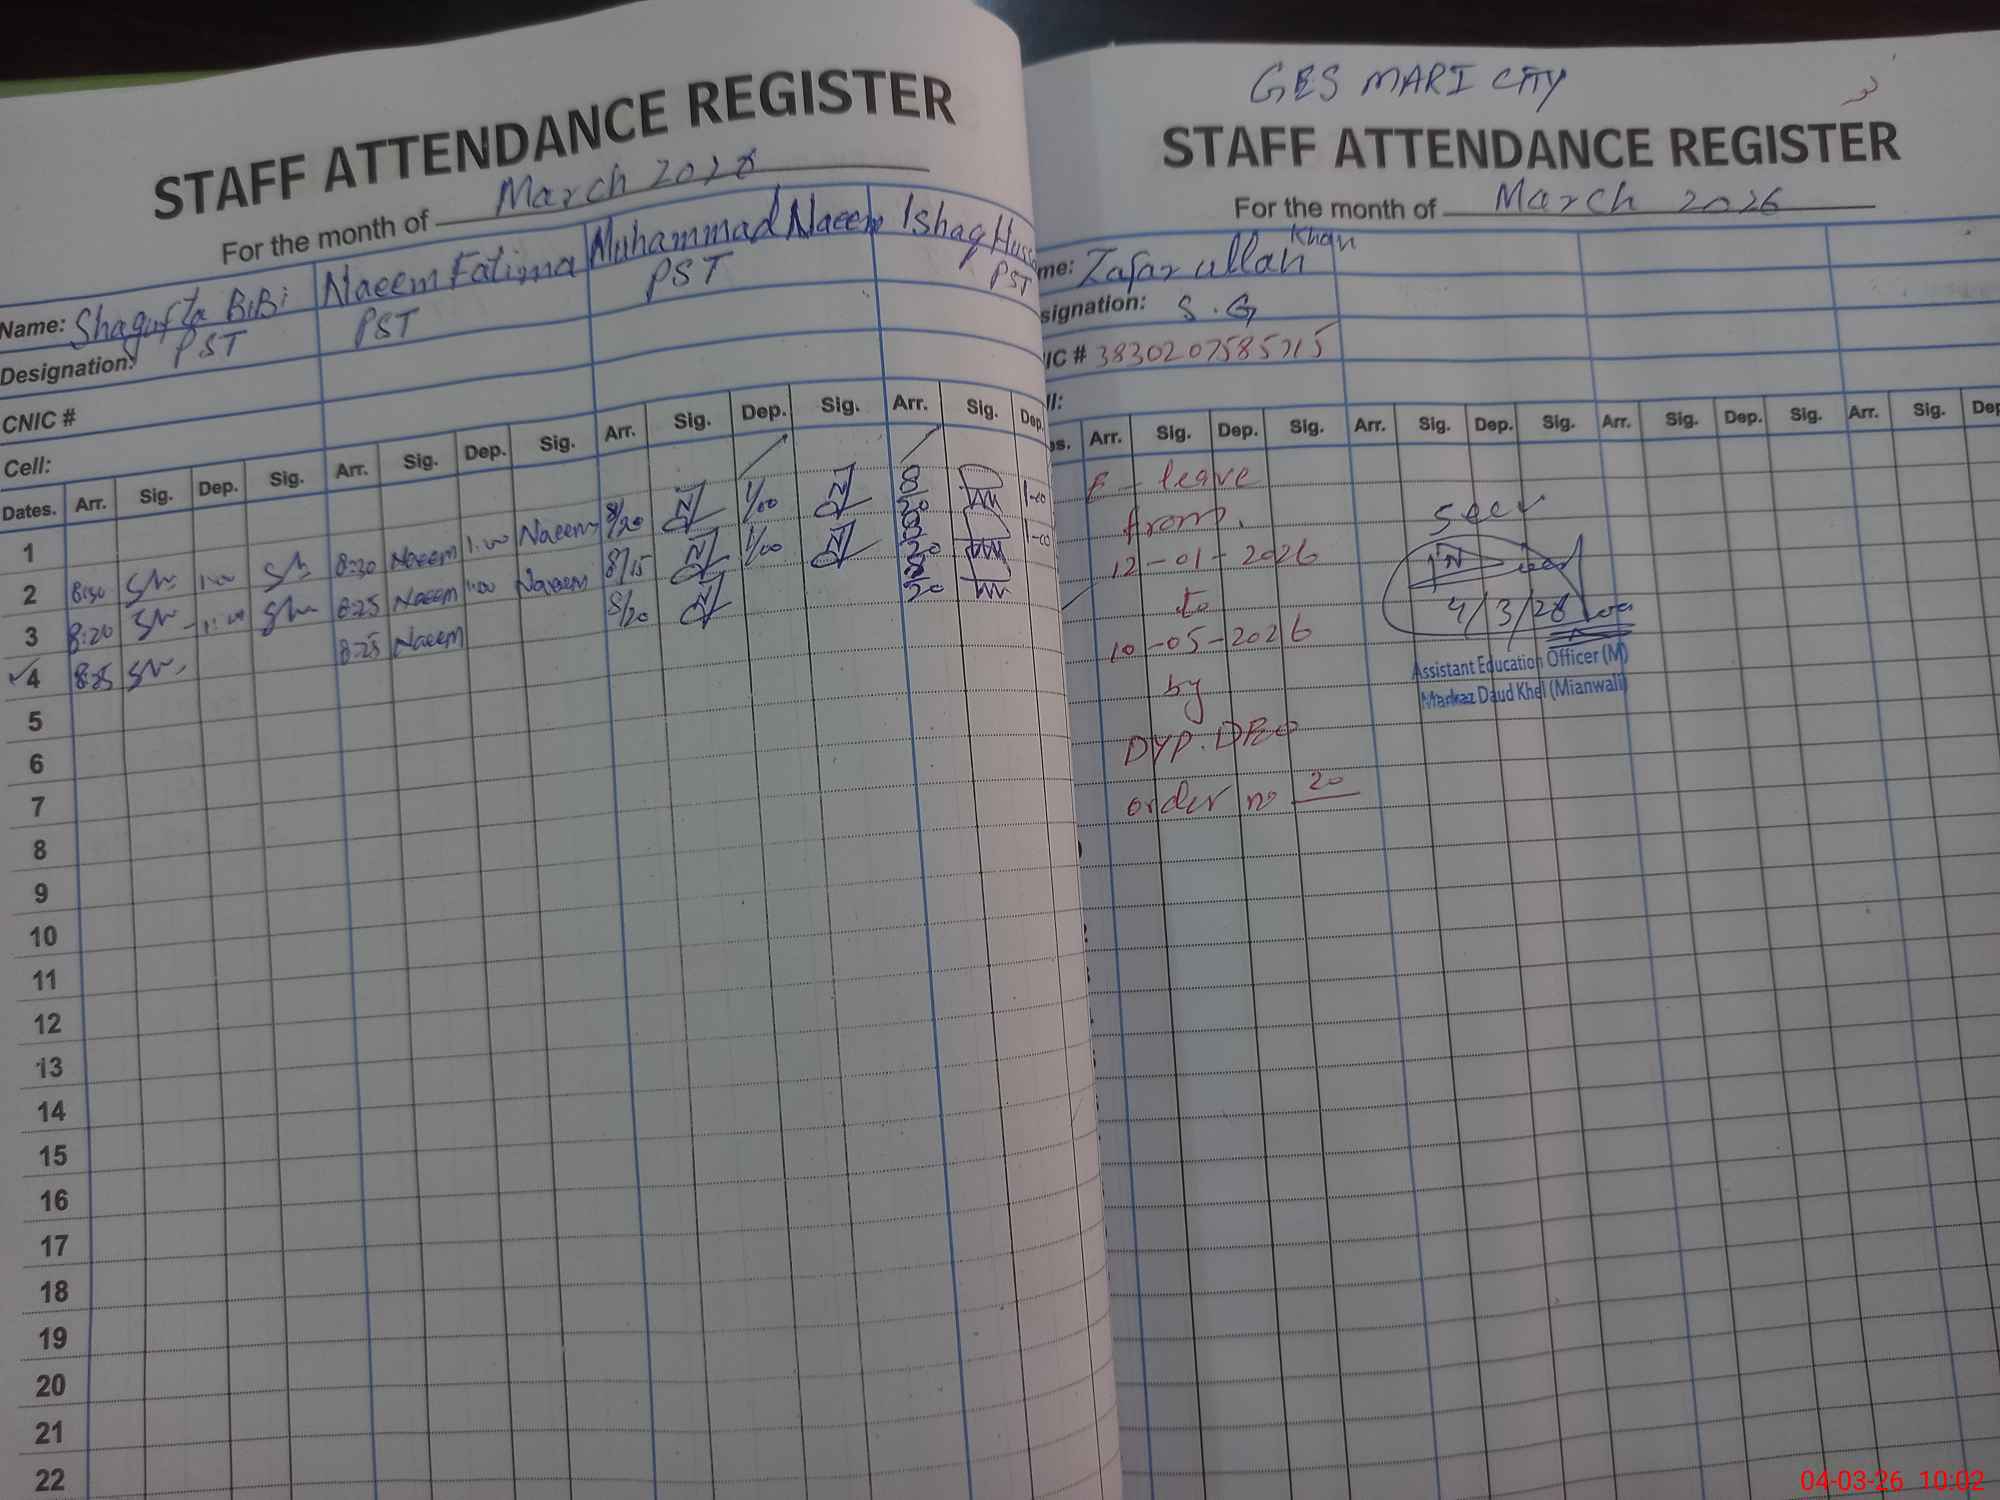 STAFF ATTENDANCE REGISTER
For the month of March 2026
Name: Shagufta BiBi Naeem Fatima Muhammad Naeem Ishaq
Designation: PST PST PST PST
CNIC #
Cell:
Dates. Arr. Sig. Dep. Sig. Arr. Sig. Dep. Sig. Arr. Sig. Dep. Sig. Arr. Sig. Dep.
1
2 8:30 1:00 8:30 Naeem 1:00 Naeem 8/20 1/00 8 20 1-00
3 8:20 1:00 8:25 Naeem 1:00 Naeem 8/15 1/00 8 20 1-00
4 8:25 8:25 Naeem 8/20 8 20
5
6
7
8
9
10
11
12
13
14
15
16
17
18
19
20
21
22
GES MARI CITY
STAFF ATTENDANCE REGISTER
For the month of March 2026
me: Zafar ullah Khan
signation: S.G
IC # 3830207585715
ll:
es. Arr. Sig. Dep. Sig. Arr. Sig. Dep. Sig. Arr. Sig. Dep. Sig. Arr. Sig. Dep
E - leave
from
12-01-2026
to
10-05-2026
by
DYP. DEO
order no 20
Seen
4/3/26
Assistant Education Officer (M)
Markaz Daud Khel (Mianwali)
04-03-26 10:02